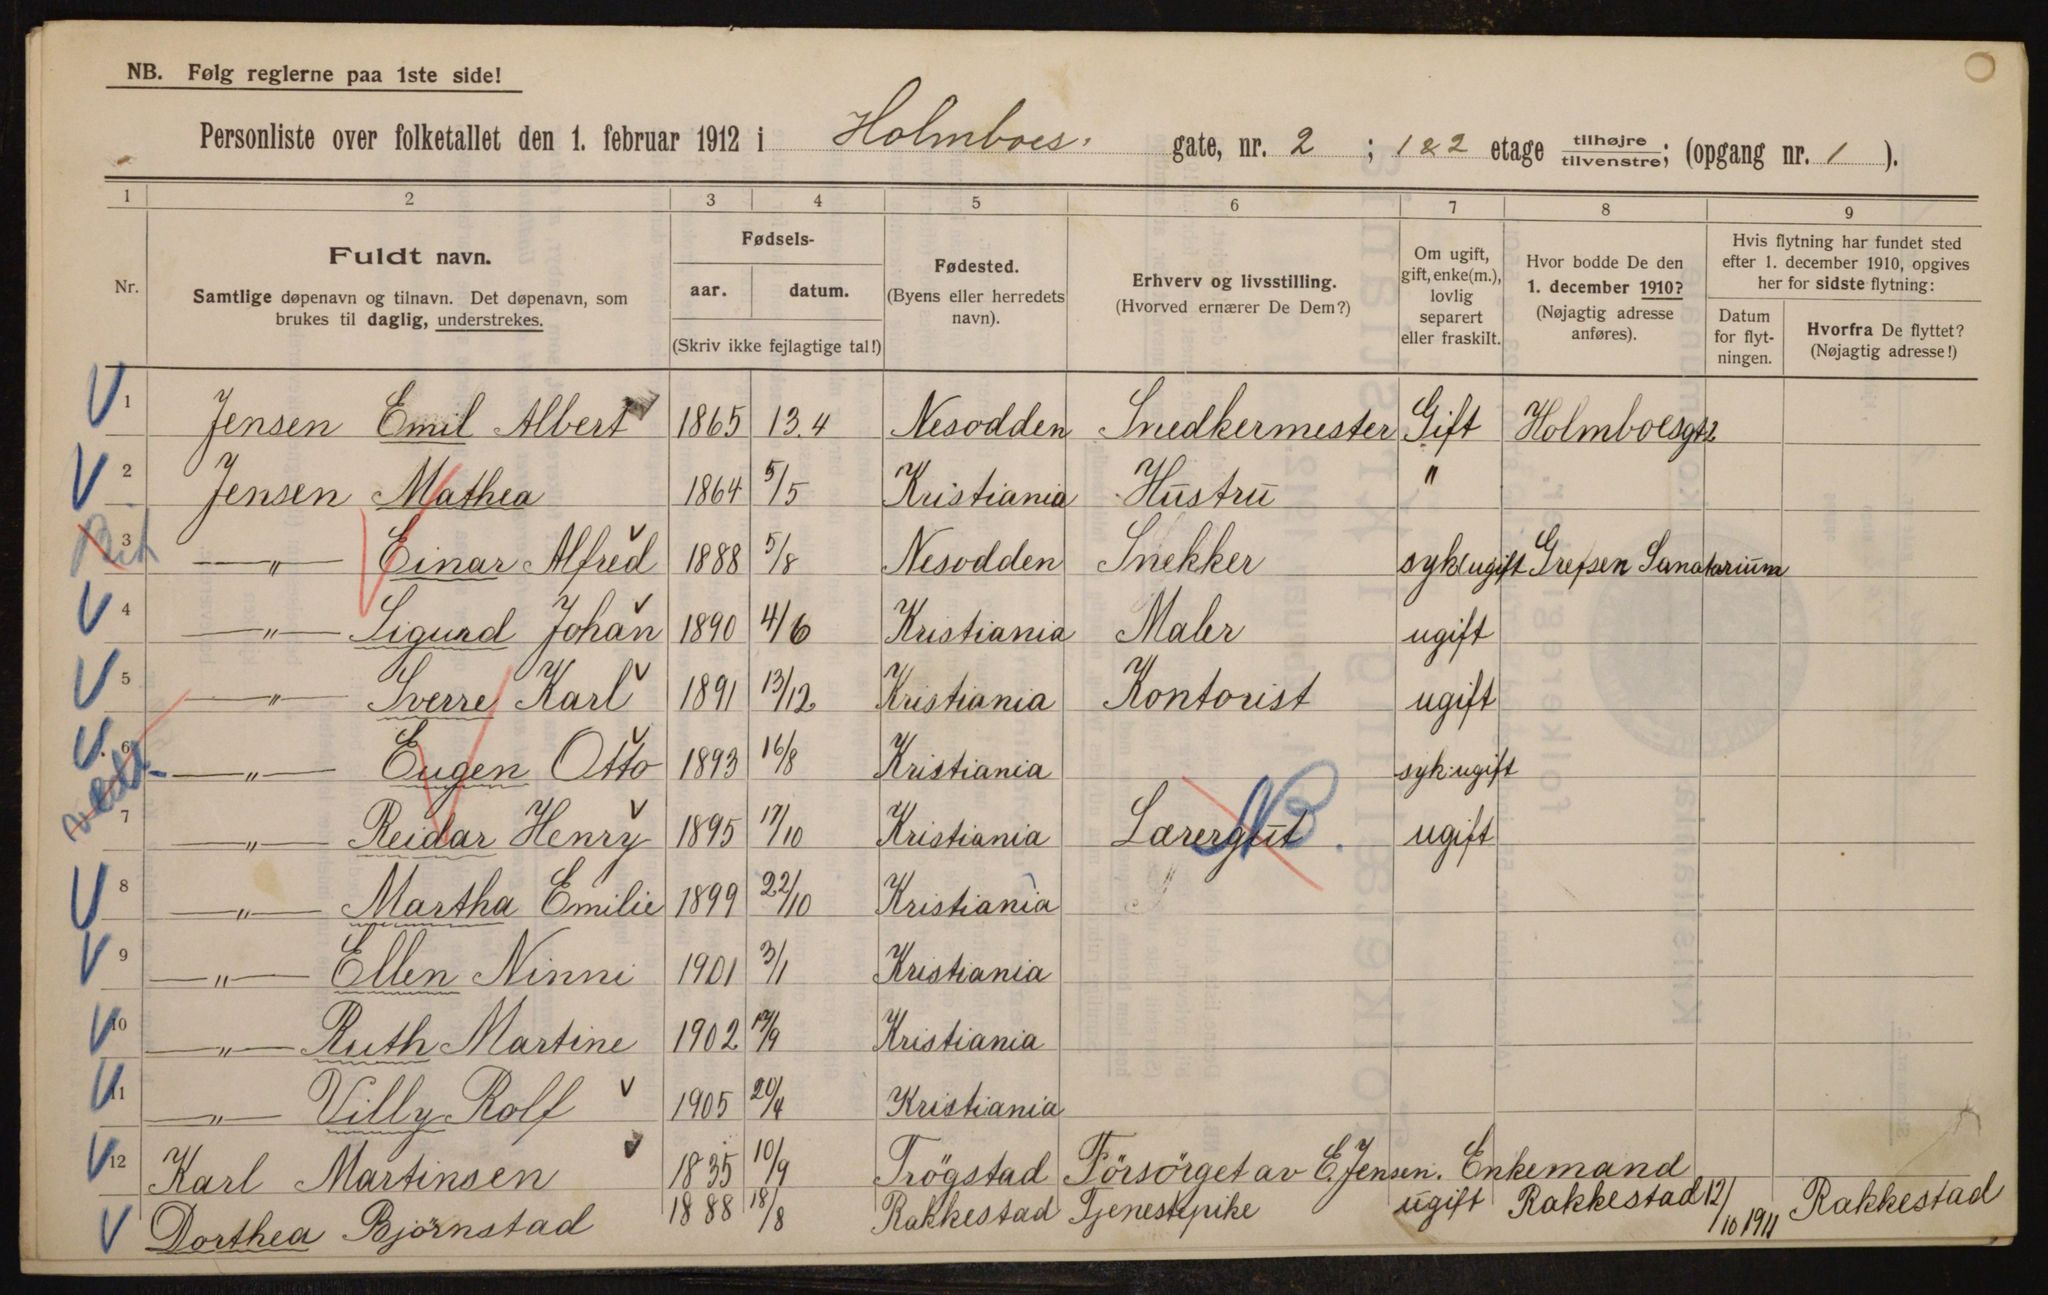 NB. Følg reglerne paa 1ste side!
Personliste over folketallet den 1. februar 1912 i Holmboes. gate, nr. 2 ; 1 & 2 etage tilhøjre/tilvenstre; (opgang nr. 1 ).
1 2 3 4 5 6 7 8 9
Nr.
Fuldt navn.
Samtlige døpenavn og tilnavn. Det døpenavn, som
brukes til daglig, understrekes.
Fødsels-
aar. datum.
(Skriv ikke fejlagtige tal!)
Fødested.
(Byens eller herredets
navn).
Erhverv og livsstilling.
(Hvorved ernærer De Dem?)
Om ugift,
gift, enke(m.),
lovlig
separert
eller fraskilt.
Hvor bodde De den
1. december 1910?
(Nøjagtig adresse
anføres).
Hvis flytning har fundet sted
efter 1. december 1910, opgives
her for sidste flytning:
Datum
for flyt-
ningen.
Hvorfra De flyttet?
(Nøjagtig adresse!)
1 Jensen Emil Albert 1865 13.4 Nesodden Snedkermester Gift Holmboesgt 2
2 Jensen Mathea 1864 5/5 Kristiania Hustru "
3 —"— Einar Alfred 1888 5/8 Nesodden Snekker syk ugift Grefsen Sanatarium
4 —"— Sigurd Johan 1890 4/6 Kristiania Maler ugift
5 —"— Sverre Karl 1891 13/12 Kristiania Kontorist ugift
6 —"— Eugen Otto 1893 16/8 Kristiania syk ugift
7 —"— Reidar Henry 1895 17/10 Kristiania Lærergut NB. ugift
8 —"— Martha Emilie 1899 22/10 Kristiania
9 —"— Ellen Ninni 1901 3/1 Kristiania
10 —"— Ruth Martine 1902 17/9 Kristiania
11 —"— Villy Rolf 1905 20/4 Kristiania
12 Karl Martinsen 1835 10/9 Trögstad Försörget av E. Jensen. Enkemand
Dorthea Björnstad 1888 18/8 Rakkestad Tjenestepike ugift Rakkestad 12/10 1911 Rakkestad